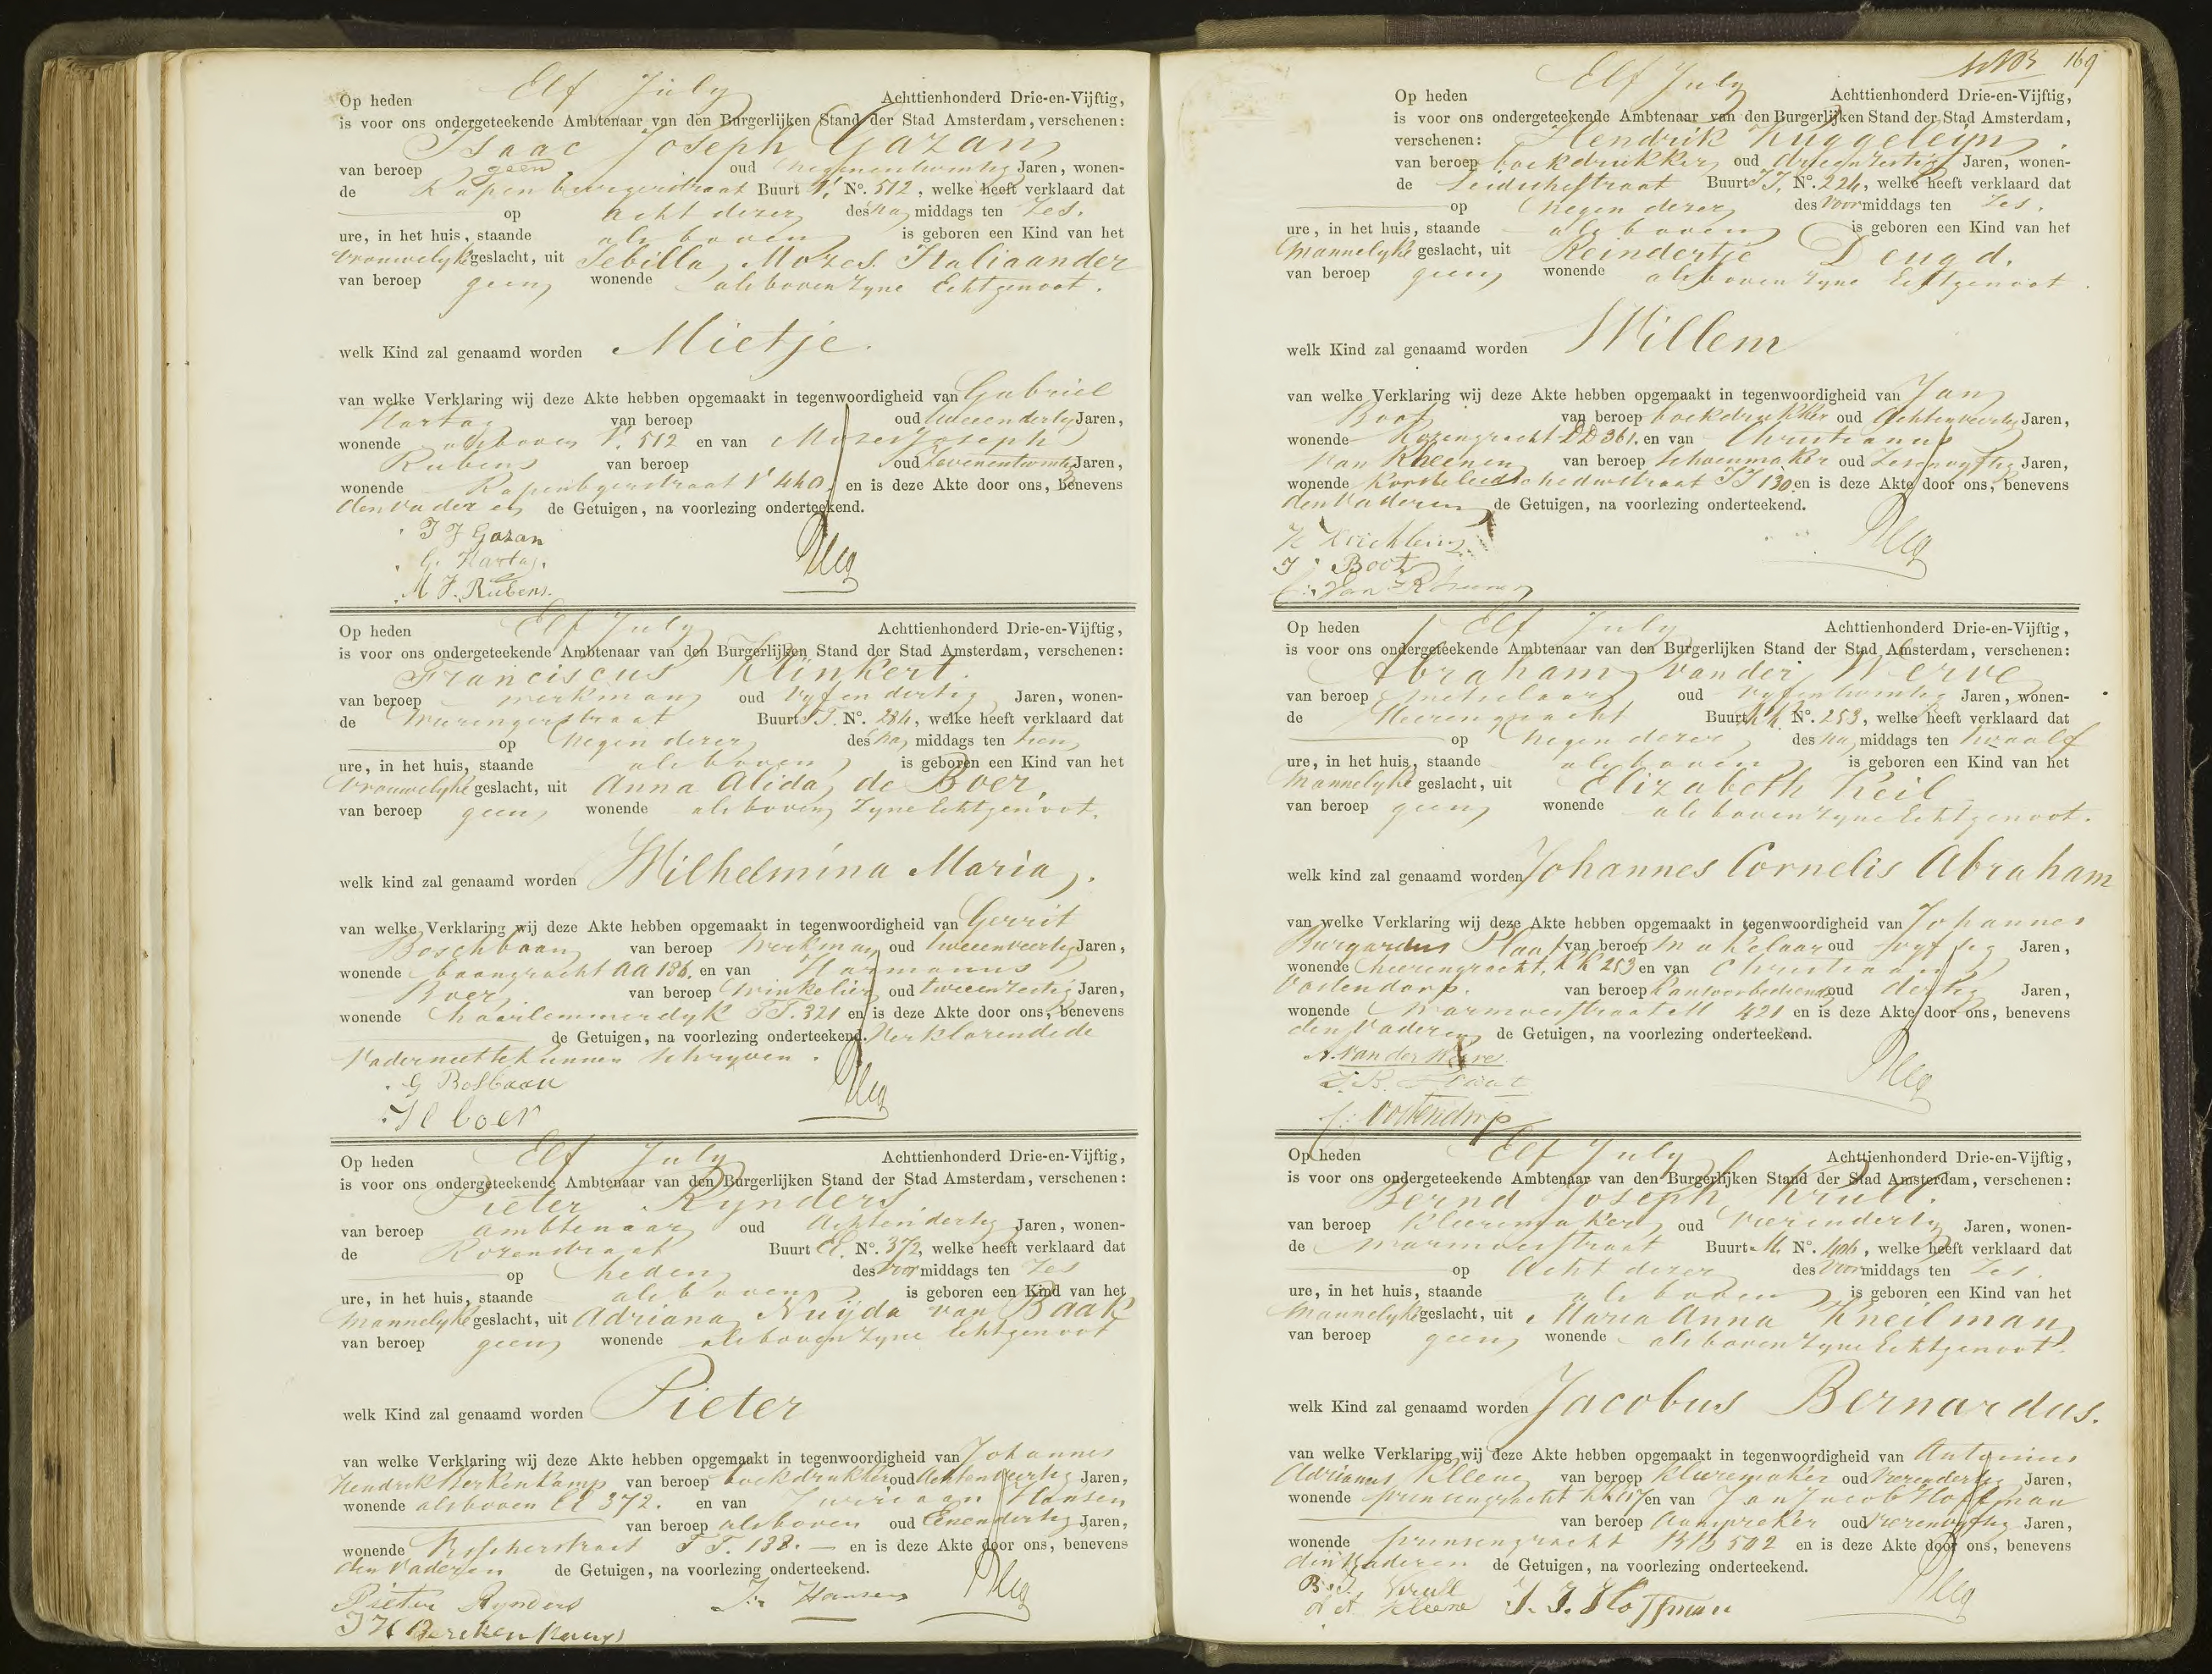 Op heden Elf July Achttienhonderd Drie-en-Vijftig,
is voor ons ondergeteekende Ambtenaar van den Burgerlijken Stand der Stad Amsterdam, verschenen:
Isaac Joseph Gazan
van beroep geen oud negenentwintig Jaren, wonen-
de Rapenburgerstraat Buurt V. No. 512, welke heeft verklaard dat
op acht dezer des na middags ten Zes.
ure, in het huis, staande als boven is geboren een Kind van het
vrouwelyke geslacht, uit Sebilla Mozes Italiaander
van beroep geen wonende als boven zyne Echtgenoot.
welk Kind zal genaamd worden Mietje.
van welke Verklaring wij deze Akte hebben opgemaakt in tegenwoordigheid van Gabriel
Hartog van beroep oud tweeendertig Jaren,
wonende als boven V. 512 en van Mozes Joseph
Rubens van beroep oud Zevenentwintig Jaren,
wonende Rapenbgerstraat V 440. en is deze Akte door ons, benevens
den vader en de Getuigen, na voorlezing onderteekend.
I J Gazan
G. Hartog.
M J. Rubens.
Op heden Elf July Achttienhonderd Drie-en-Vijftig,
is voor ons ondergeteekende Ambtenaar van den Burgerlijken Stand der Stad Amsterdam, verschenen:
Franciscus Klinkert.
van beroep werkman oud vyfendertig Jaren, wonen-
de Wieringerstraat Buurt TT. No. 284, welke heeft verklaard dat
op negen dezer des na middags ten tien
ure, in het huis, staande als boven is geboren een Kind van het
vrouwelyke geslacht, uit Anna Alida de Boer,
van beroep geen wonende als boven zyne Echtgenoot.
welk kind zal genaamd worden Wilhelmina Maria.
van welke Verklaring wij deze Akte hebben opgemaakt in tegenwoordigheid van Gerrit
Boschbaan van beroep werkman oud tweeenveertig Jaren,
wonende baangracht AA 136. en van Harmanus
Boer van beroep winkelier oud tweeenzestig Jaren,
wonende haarlemmerdyk TT. 321 en is deze Akte door ons, benevens
de Getuigen, na voorlezing onderteekend. Verklarende de
Vader niet te kunnen schryven.
G Bosbaan
H boer
Op heden Elf July Achttienhonderd Drie-en-Vijftig,
is voor ons ondergeteekende Ambtenaar van den Burgerlijken Stand der Stad Amsterdam, verschenen:
Pieter Rynders.
van beroep ambtenaar oud Achtendertig Jaren, wonen-
de Rozenstraat Buurt EE. No. 372, welke heeft verklaard dat
op heden des Voormiddags ten Zes
ure, in het huis, staande als boven is geboren een Kind van het
Mannelyke geslacht, uit Adriana Nuijda van Baak
van beroep geen wonende als boven zyne Echtgenoot
welk Kind zal genaamd worden Pieter
van welke Verklaring wij deze Akte hebben opgemaakt in tegenwoordigheid van Johannes
Hendrik Berkenkamp van beroep boekdrukker oud Achtenveertig Jaren,
wonende als boven EE 372. en van Hansen
van beroep als boven oud Eenendertig Jaren,
wonende TT. 138. en is deze Akte door ons, benevens
den Vader en de Getuigen, na voorlezing onderteekend.
Pieter Rynders J. Hansen
J H Berckenkamp
169
Op heden Elf July Achttienhonderd Drie-en-Vijftig,
is voor ons ondergeteekende Ambtenaar van den Burgerlijken Stand der Stad Amsterdam,
verschenen: Hendrik Kuggeleijn.
van beroep boekdrukker oud drieenzestig Jaren, wonen-
de Leidschestraat Buurt JJ. No. 224, welke heeft verklaard dat
op negen dezer des Voormiddags ten Zes.
ure, in het huis, staande als boven is geboren een Kind van het
Mannelyke geslacht, uit Reindertje Deugd.
van beroep geen wonende als boven zyne Echtgenoot.
welk Kind zal genaamd worden Willem
van welke Verklaring wij deze Akte hebben opgemaakt in tegenwoordigheid van Jan
Boot van beroep boekdrukker oud Achtenveertig Jaren,
wonende Rozengracht DD 361. en van Christianus
van Rheenen van beroep Schoenmaker oud Zesenvyftig Jaren,
wonende JJ 130. en is deze Akte door ons, benevens
den Vader en de Getuigen, na voorlezing onderteekend.
J Boot
C: van Rheenen
Op heden Elf July Achttienhonderd Drie-en-Vijftig,
is voor ons ondergeteekende Ambtenaar van den Burgerlijken Stand der Stad Amsterdam, verschenen:
Abraham van der Werve
van beroep metselaar oud vyfentwintig Jaren, wonen-
de Heerengracht Buurt KK No. 253, welke heeft verklaard dat
op negen dezer des na middags ten twaalf
ure, in het huis, staande als boven is geboren een Kind van het
Mannelyke geslacht, uit Elizabeth Keil
van beroep geen wonende als boven zyne Echtgenoot.
welk kind zal genaamd worden Johannes Cornelis Abraham
van welke Verklaring wij deze Akte hebben opgemaakt in tegenwoordigheid van Johannes
Burgardus Staat van beroep Makelaar oud vyftig Jaren,
wonende heerengracht, KK 253 en van Christiaan
Oostendorp. van beroep kantoorbediende oud dertig Jaren,
wonende Warmoesstraat M 421 en is deze Akte door ons, benevens
den Vader en de Getuigen, na voorlezing onderteekend.
A. van der Werve
J. B. Staat
C: Oostendorp
Op heden Elf July Achttienhonderd Drie-en-Vijftig,
is voor ons ondergeteekende Ambtenaar van den Burgerlijken Stand der Stad Amsterdam, verschenen:
Bernd Joseph Krull.
van beroep kleermaker oud vierendertig Jaren, wonen-
de Warmoesstraat Buurt M. No. 406, welke heeft verklaard dat
op Acht dezer des Voormiddags ten Zes.
ure, in het huis, staande als boven is geboren een Kind van het
Mannelyke geslacht, uit Maria Anna Kneilman
van beroep geen wonende als boven zyne Echtgenoot.
welk Kind zal genaamd worden Jacobus Bernardus.
van welke Verklaring wij deze Akte hebben opgemaakt in tegenwoordigheid van Antonius
Adrianus Kleene van beroep kleermaker oud vierendertig Jaren,
wonende prinsengracht en van Jan Jacob Hoffman
van beroep Aanspreker oud vierenvyftig Jaren,
wonende prinsengracht RR 502 en is deze Akte door ons, benevens
den Vader en de Getuigen, na voorlezing onderteekend.
B. J. Krull
A A Kleene J. J. Hoffman